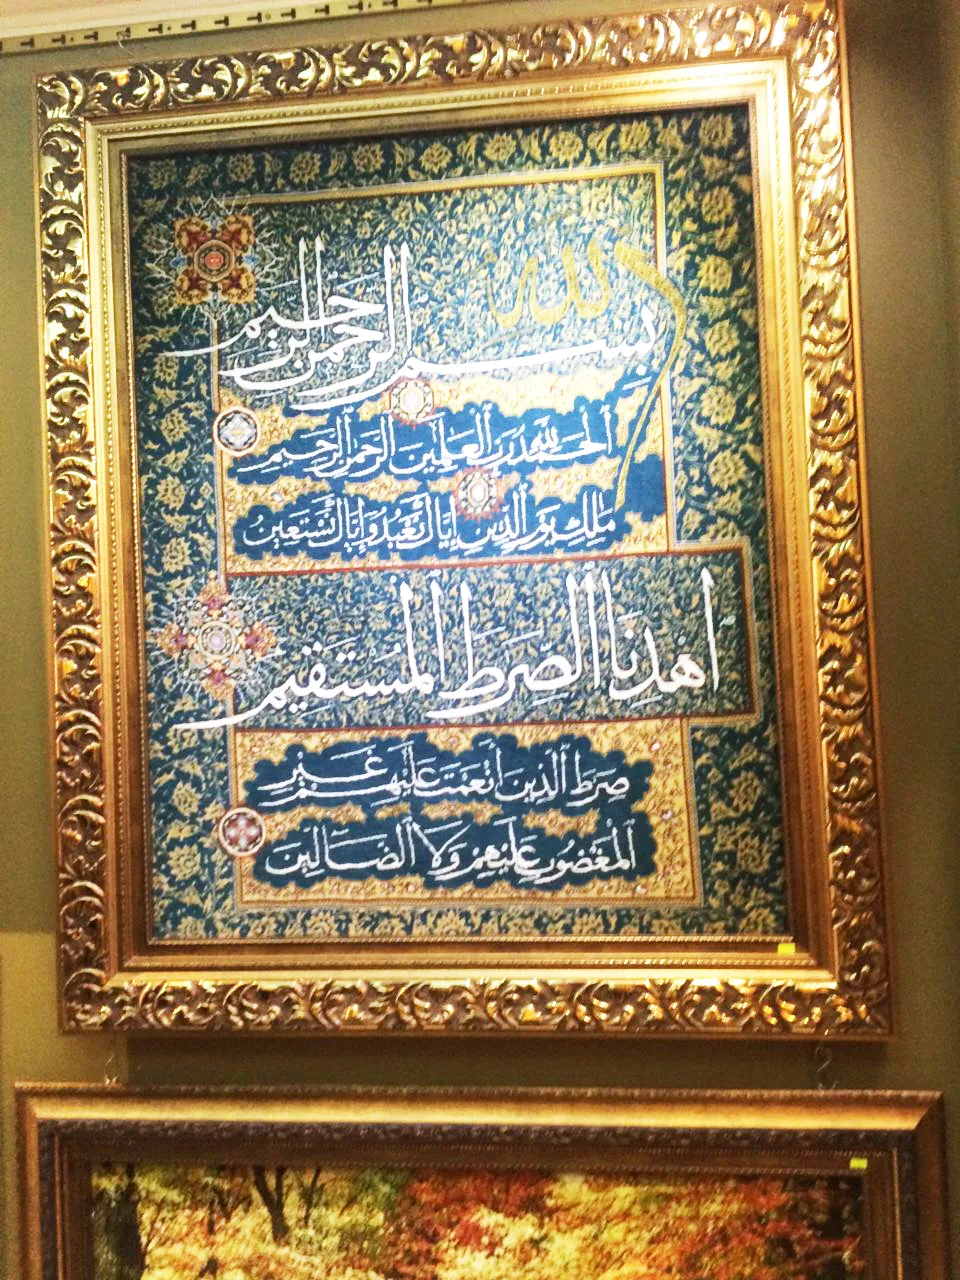 بسم الله الرحمن الرحيم
الحمد لله رب العلمين الرحمن الرحيم
ملك يوم الدين إياك نعبد وإياك نستعين
اهدنا الصرط المستقيم
صرط الذين أنعمت عليهم غير
المغضوب عليهم ولا الضالين